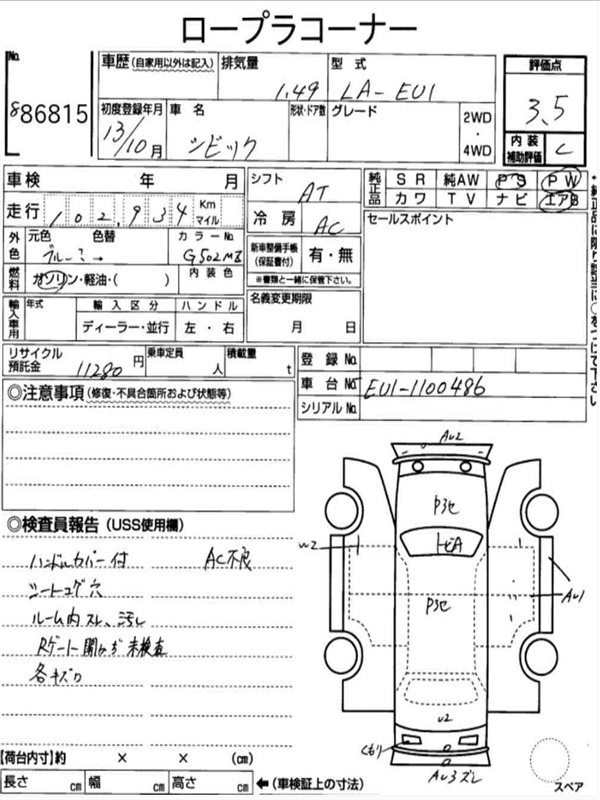 ロープラコーナー
No.
886815
車歴(自家用以外は記入)
排気量
1.49
型 式
LA-EU1
評価点
3.5
内装
補助評価
C
初度登録年月
13/10月
車 名
シビック
形状・ドア数
グレード
2WD
・
4WD
車検 年 月
シフト
AT
純正品
SR 純AW PS PW
カワ TV ナビ エアB
走行 102,934 Km マイル
冷 房
AC
セールスポイント
*純正品に限り該当に○をつけて下さい
外色
元色 色替
ブルー?→
カラーNo.
G502MI
新車整備手帳
(保証書付)
有・無
※書類と一緒に保管下さい。
燃料
ガソリン・軽油・( )
内 装 色
名義変更期限
月 日
輸入車用
年式
輸 入 区 分
ハ ン ド ル
ディーラー・並行
左 ・ 右
リサイクル
預託金
11280 円
乗車定員
人
積載量
t
登 録 No.
車 台 No.
EU1-1100486
シリアルNo.
◎注意事項(修復・不具合箇所および状態等)
◎検査員報告(USS使用欄)
ハンドルカバー付 AC不良
シートコゲ穴
ルーム内スレ、汚レ
Rゲート開かず未検査
各キズ
AU2
P3セ
トビA
U2
P3セ
AU1
U2
くもり
AU3ズレ
スペア
【荷台内寸】約 × × (cm)
長さ cm 幅 cm 高さ cm ←(車検証上の寸法)